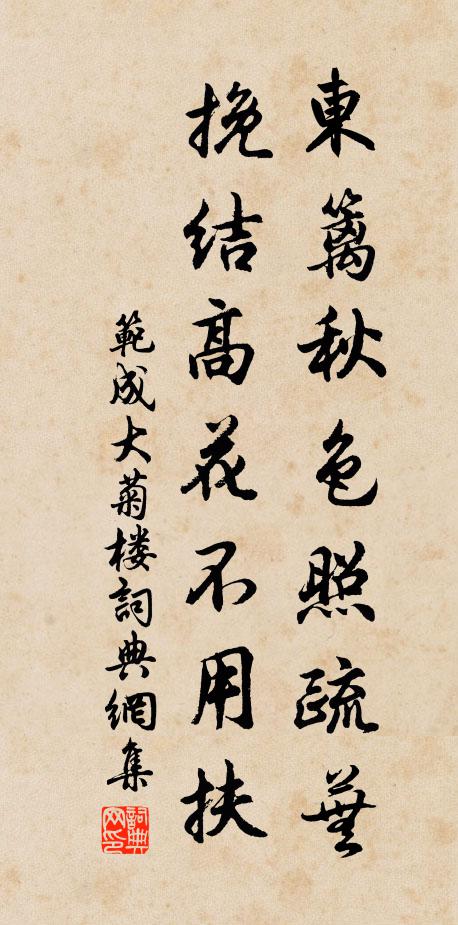 東籬秋色照疏蕪
挽結高花不用扶
範成大菊楼詞典網集
詞典
网印